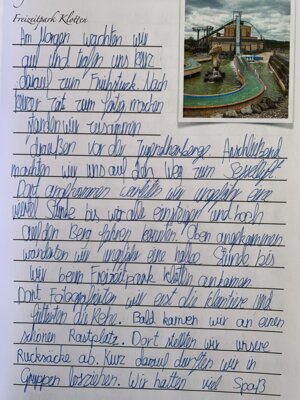 Freizeitpark Klotten
Am Morgen wachten wir
auf und trafen uns kurz
darauf zum Frühstück. Nach
kurzer Zeit zum fertig machen
standen wir zusammen
draußen vor der Jugendherberge. Anschließend
machten wir uns auf den Weg zum Sessellift.
Dort angekommen warteten wir ungefähr eine
viertel Stunde bis wir alle einsteigen und hoch
auf den Berg fahren konnten. Oben angekommen
wanderten wir ungefähr eine halbe Stunde bis
wir beim Freizeitpark Klotten ankamen.
Dort fotografierten wir erst die Kleintiere und
fütterten die Rehe. Bald kamen wir an einen
schönen Rastplatz. Dort stellten wir unsere
Rucksäcke ab. Kurz darauf durften wir in
Gruppen losziehen. Wir hatten viel Spaß